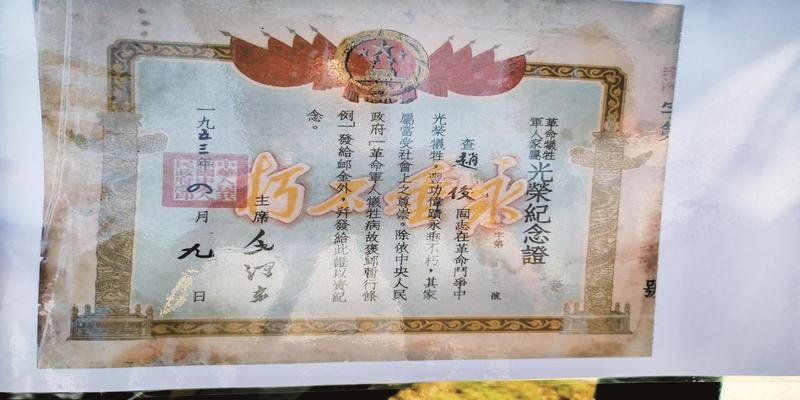 革命犧牲
軍人家屬
光榮紀念證
字第
號
查趙俊同志在革命鬥爭中
光榮犧牲,豐功偉蹟永垂不朽,其家
屬當受社會上之尊崇。除依中央人民
政府「革命軍人犧牲病故褒卹暫行條
例」發給卹金外,并發給此證以資紀
念。
主席 毛澤東
一九五三年四月九日
永垂不朽
號